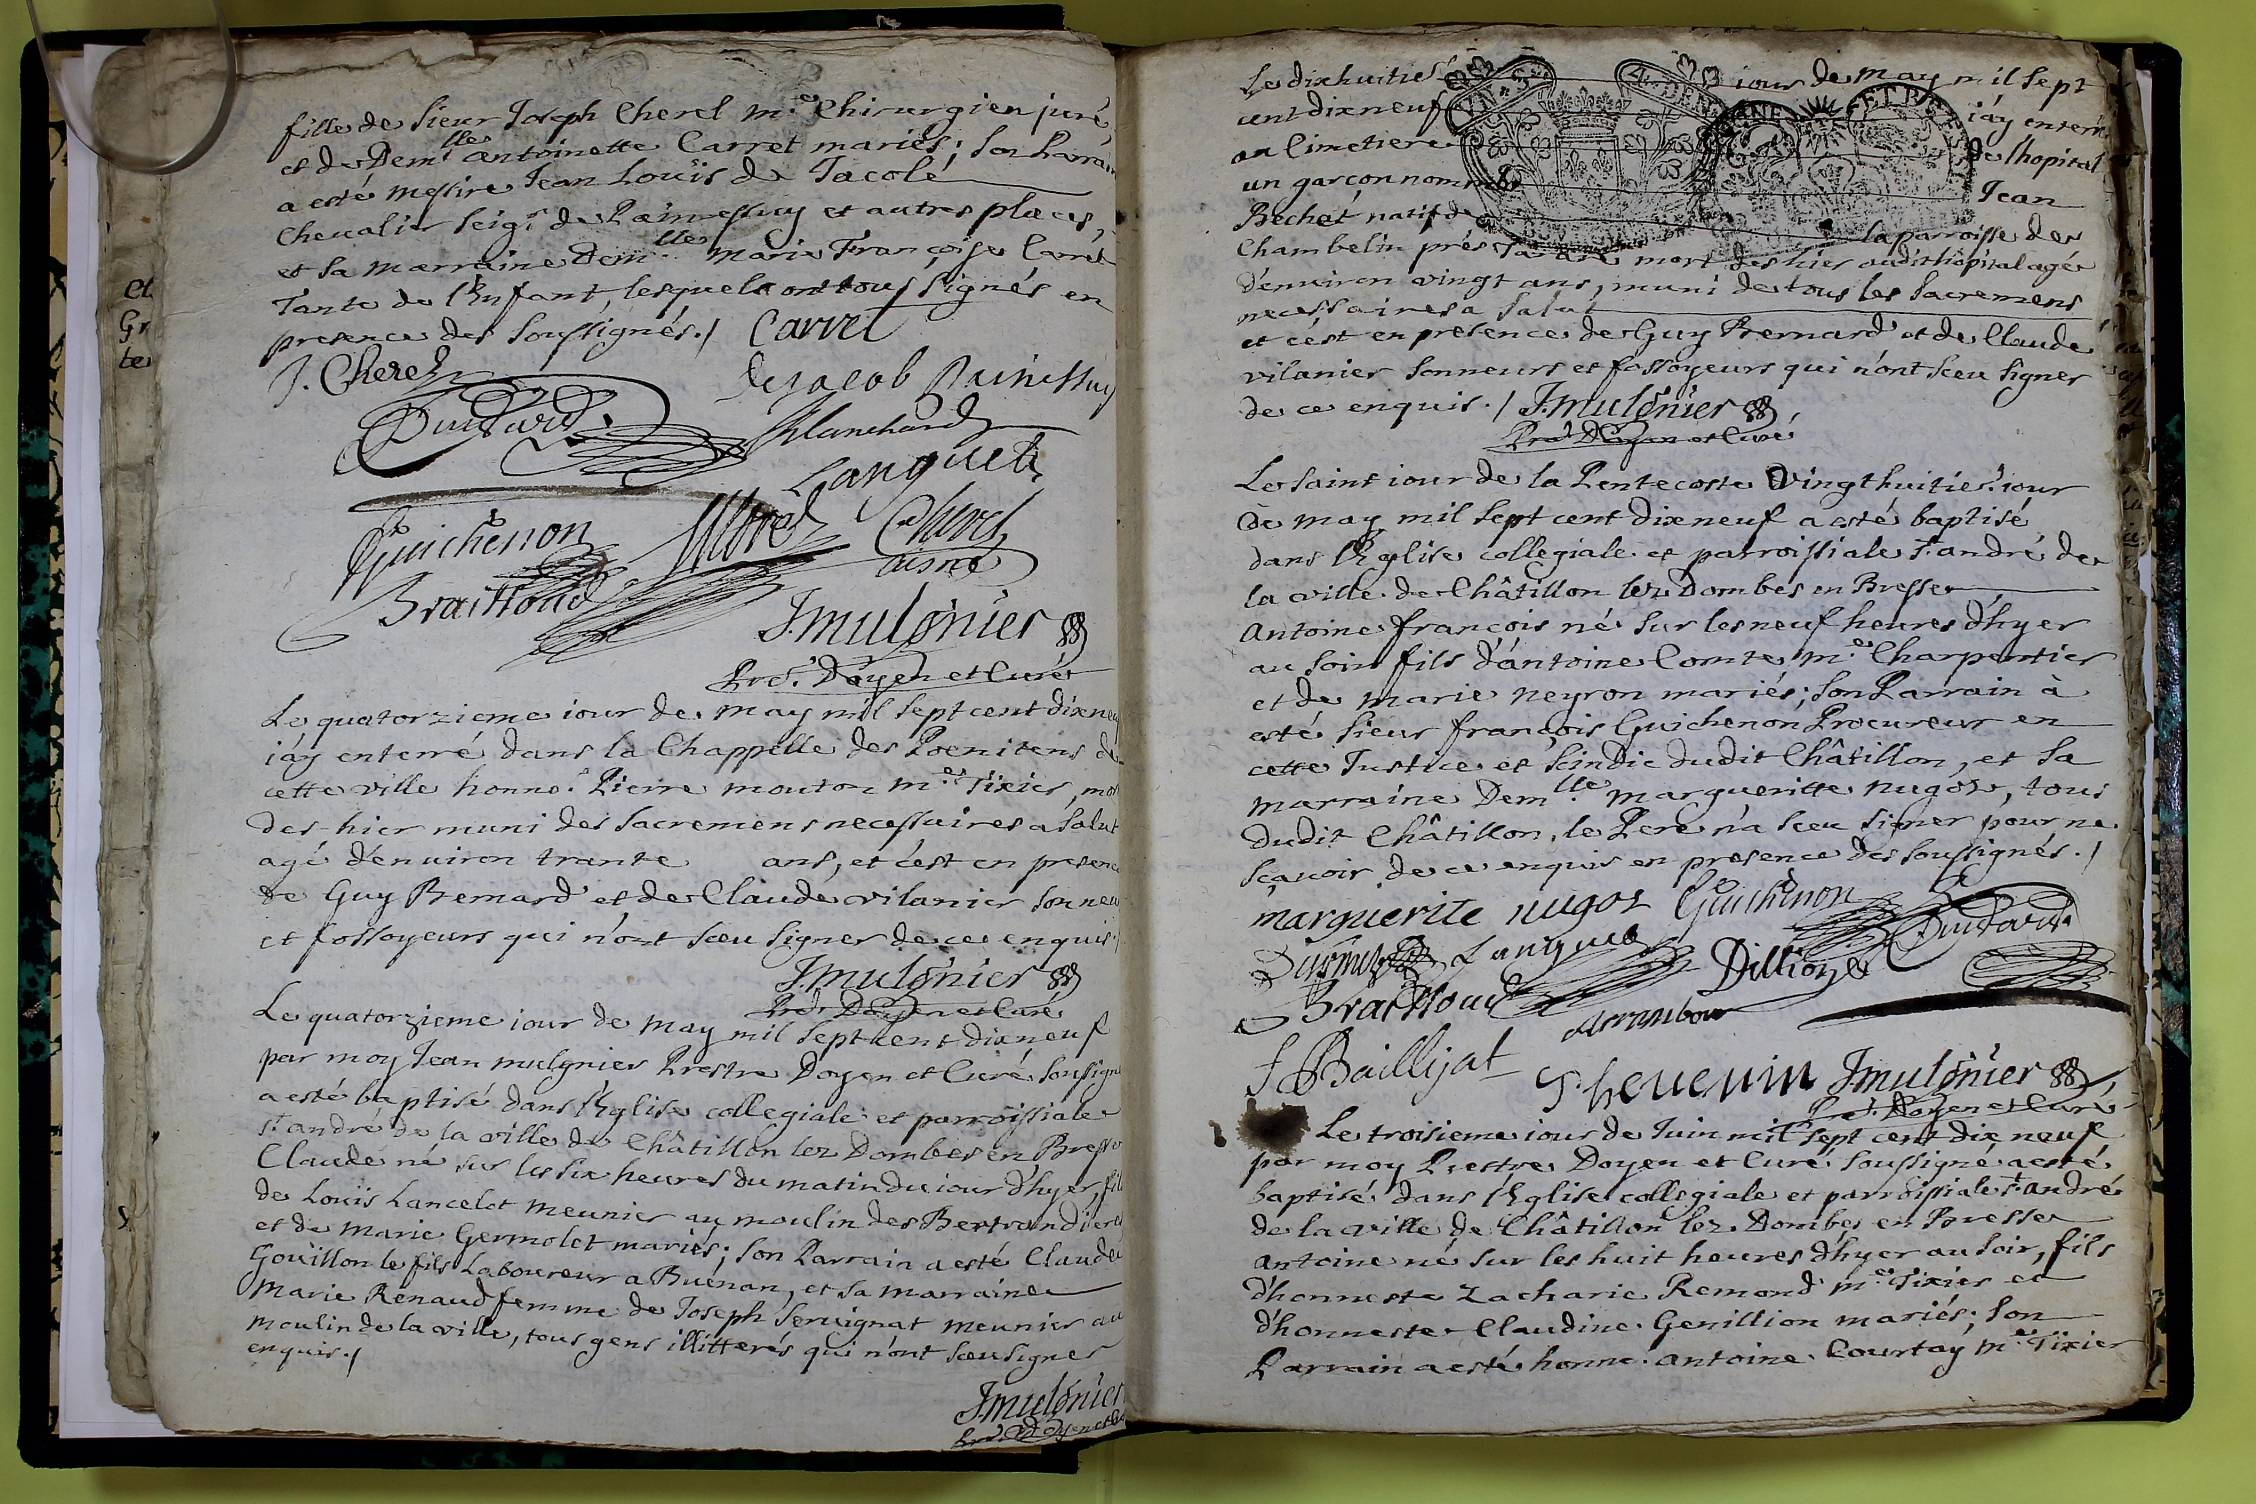 fille de Sieur Joseph Cherel m.e Chirurgien juré
et de Dem.lle antoinette Carret mariés; son Parrain
a esté Messire Jean Loüis de Jacolé
Chevalier seig.r de et autres places,
et sa marraine Dem.lle marie Françoise Carret
Tante de l'Enfant, lesquels ont tous signés en
presence des soussignés./ Carret
J. Cherel
Blanchard
Languet
Guichenon Cherel
aisné
Braittoud
J. mulgnier
Pre.' Doyen et Curé
Le quatorzieme iour de may mil sept cent dixneuf
i'ay enterré dans la Chappelle des Poenitens de
cette ville honne.' Pierre mouton m.e Tixier, mo
des-hier muni des sacremens necessaires a salut
agé d'environ trante ans, et c'est en presence
de Guy Bernard et de Claude vilanier sonneu
et fossoyeurs qui n'ont sceu signer de ce enquis./
J. mulgnier
Pre.' Doyen et Curé
Le quatorzieme iour de may mil sept cent dixneuf
par moy Jean mulgnier Prestre Doyen et Curé soussign
a esté baptisé dans l'Eglise collegiale et parroissiale
s.t andré de la ville de Châtillon lez Dombes en Bresse
Claude né sur les six heures du matin du iour d'hyer, fils
de Loüis Lancelot meunier au moulin des Bertrandieres
et de Marie Germolet mariés; son Parrain a esté Claude
Gouillon le fils Laboureur a Buenan, et sa marraine
Marie Renaud femme de Joseph Servignat meunier au
moulin de la ville, tous gens illitterés qui n'ont sceu signer
enquis./
J. mulgnier
Pre.' Doyen et Cu
Le dixhuitie.' iour de may mil sept
cent dixneuf i'ay enterré
au Cimetiere de l'hopital
un garçon nommé Jean
Bechet natif de la parroisse de
Chambelin prés Tarare mort des hier audit hôpital agé
d'environ vingt ans, muni de tous les sacremens
necessaires a salut
et c'est en presence de Guy Bernard et de Claude
vilanier sonneurs et fossoyeurs qui n'ont sceu signer
de ce enquis./ J. mulgnier
Pre.' Doyen et Curé
Le saint iour de la Pentecoste vingthuitie.' iour
de may mil sept cent dixneuf a esté baptisé
dans l'Eglise collegiale et parroissiale s.t andré de
la ville de Châtillon lez Dombes en Bresse
antoine françois né sur les neuf heures d'hyer
au soir fils d'antoine Comte m.e Charpentier
et de marie neyron mariés; son Parrain à
esté sieur françois Guichenon Procureur en
cette Justice et scindic dudit Châtillon, et sa
marraine Dem.lle margueritte nugoz, tous
dudit Châtillon, le Pere n'a sceu signer pour ne
sçavoir de ce enquis en presence des soussignés./
marguerite nugoz Guichenon
Languet
Braittoud Dillioz
J Baillijat Thevenin J. mulgnier
Pre.' Doyen et Curé
Le troisieme iour de Juin mil sept cent dix neuf
par moy Prestre Doyen et Curé soussigné a esté
baptisé dans l'Eglise collegiale et parroissiale s.t andré
de la ville de Châtillon lez Dombes en Bresse
antoine né sur les huit heures d'hyer au soir, fils
d'honneste Zacharie Remond m.e Tixier et
d'honneste Claudine Genillion mariés; son
Parrain a esté honne.' antoine Courtay m.e Tixier